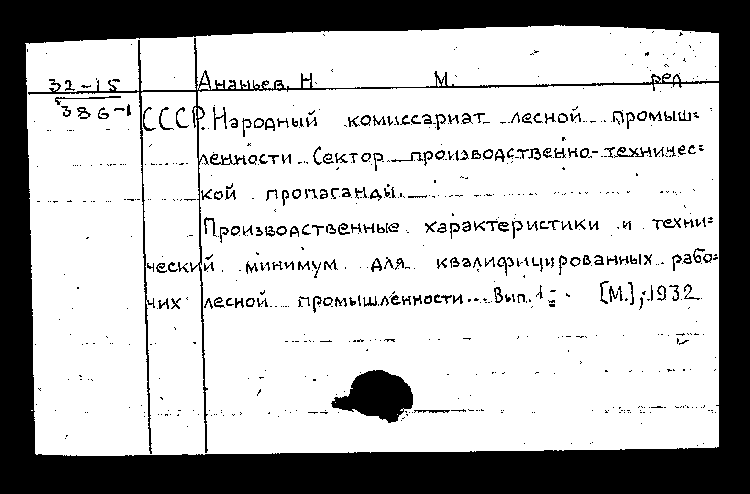 32-15
Ананьев, Н. М. ред
386-1
СССР. Народный комиссариат лесной промыш-
ленности. Сектор производственно-техничес-
кой пропаганды.
Производственные характеристики и техни-
ческий минимум для квалифицированных рабо-
чих лесной промышленности... Вып. 1- . [М.], 1932